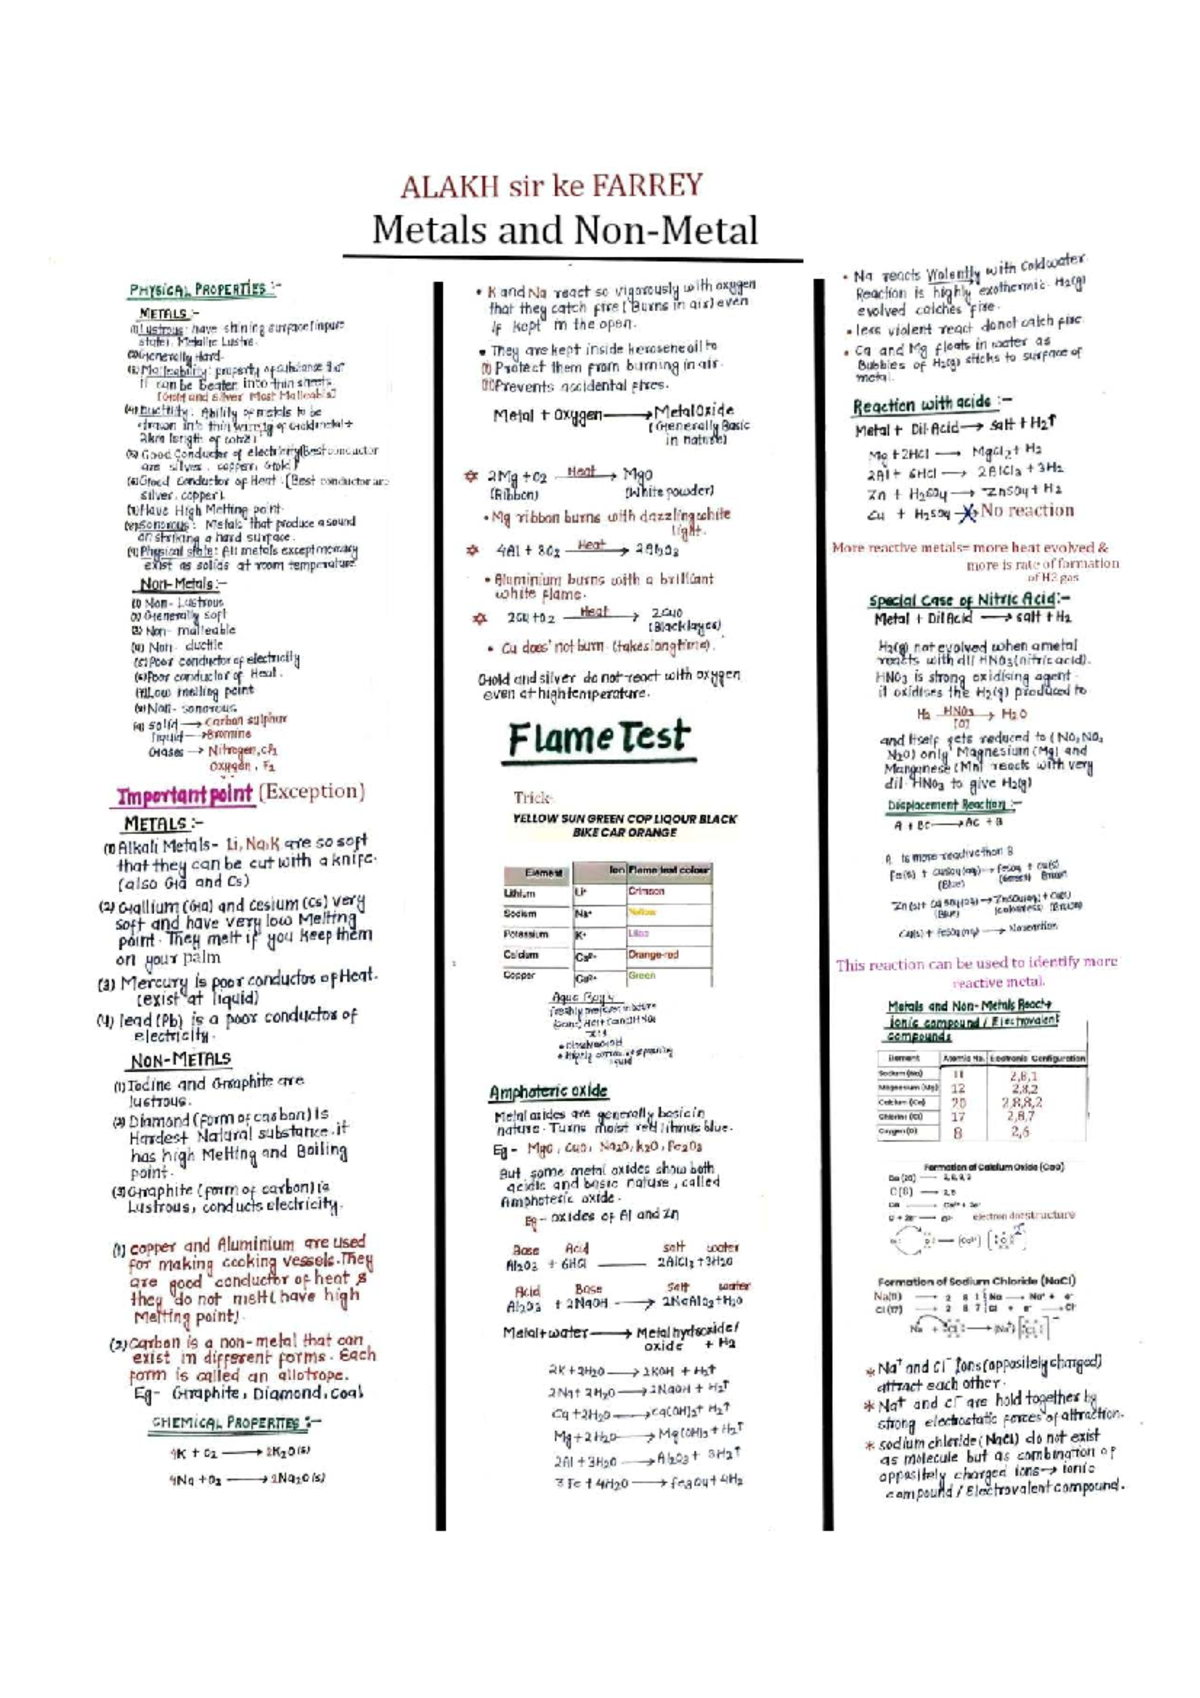 ALAKH sir ke FARREY
Metals and Non-Metal
PHYSICAL PROPERTIES :-
METALS :-
(1) Lustrous: have shining surface (in pure
state). Metallic Lustre.
(2) Generally Hard.
(3) Malleability: property of substance that
it can be beaten into thin sheets
[Gold and Silver Most Malleable]
(4) Ductility: Ability of metals to be
drawn into thin wires
2km length of
(5) Good Conductor of electricity (Best conductor
are silver, copper, Gold)
(6) Good Conductor of Heat. (Best conductor are
silver, copper).
(7) Have High Melting point.
Sonorous: Metals that produce a sound
on striking a hard surface.
Physical state: All metals except mercury
exist as solids at room temperature
Non-Metals:-
(1) Non-Lustrous
(2) Generally soft
(3) Non-malleable
(4) Non-ductile
(5) Poor conductor of electricity
(6) Poor conductor of Heat.
(7) Low melting point
(8) Non-sonorous
(9) Solid → Carbon sulphur
liquid → Bromine
Gases → Nitrogen, Cl2
Oxygen, F2
Important point (Exception)
METALS :-
(1) Alkali Metals- Li, Na, K are so soft
that they can be cut with a knife.
(also Ga and Cs)
(2) Gallium (Ga) and Cesium (Cs) very
soft and have very low Melting
point. They melt if you keep them
on your palm
(3) Mercury is poor conductor of Heat.
(exist at liquid)
(4) lead (Pb) is a poor conductor of
electricity.
NON-METALS
(1) Iodine and Graphite are
lustrous.
(2) Diamond (form of carbon) is
Hardest Natural substance. it
has high Melting and Boiling
point.
(3) Graphite (form of carbon) is
Lustrous, conducts electricity.
(1) copper and Aluminium are used
for making cooking vessels. They
are good conductor of heat &
they do not melt (have high
Melting point).
(2) Carbon is a non-metal that can
exist in different forms. Each
form is called an allotrope.
Eg- Graphite, Diamond, Coal
CHEMICAL PROPERTIES :-
4K + O2 → 2K2O(s)
4Na + O2 → 2Na2O(s)
• K and Na react so vigorously with oxygen
that they catch fire (Burns in air) even
if kept in the open.
• They are kept inside kerosene oil to
(i) Protect them from burning in air.
(ii) Prevents accidental fires.
Metal + Oxygen → Metal Oxide
(Generally Basic
in nature)
2Mg + O2 —Heat→ MgO
(Ribbon) (White powder)
• Mg ribbon burns with dazzling white
light.
4Al + 3O2 —Heat→ 2Al2O3
• Aluminium burns with a brilliant
white flame.
2Cu + O2 —Heat→ 2CuO
(Black layer)
• Cu does' not burn (takes long time).
Gold and silver do not react with oxygen
even at high temperature.
Flame Test
Trick:
YELLOW SUN GREEN COP LIQOUR BLACK
BIKE CAR ORANGE
Element Ion Flame test colour
Lithium Li+ Crimson
Sodium Na+ Yellow
Potassium K+ Lilac
Calcium Ca2+ Orange-red
Copper Cu2+ Green
Aqua Regia
Amphoteric oxide
Metal oxides are generally basic in
nature. Turns moist red litmus blue.
Eg - MgO, CuO, Na2O, K2O, Fe2O3
But some metal oxides show both
acidic and basic nature, called
Amphoteric oxide.
Eg - oxides of Al and Zn
Base Acid salt water
Al2O3 + 6HCl → 2AlCl3 + 3H2O
Acid Base Salt water
Al2O3 + 2NaOH → 2NaAlO2 + H2O
Metal + water → Metal hydroxide/
oxide + H2
2K + 2H2O → 2KOH + H2↑
2Na + 2H2O → 2NaOH + H2↑
Ca + 2H2O → Ca(OH)2 + H2↑
Mg + 2H2O → Mg(OH)2 + H2↑
2Al + 3H2O → Al2O3 + 3H2↑
3Fe + 4H2O → Fe3O4 + 4H2
• Na reacts Violently with Cold water
Reaction is highly exothermic. H2(g)
evolved catches fire.
• less violent react donot catch fire
• Ca and Mg floats in water as
Bubbles of H2(g) sticks to surface of
metal.
Reaction with acids :-
Metal + Dil. Acid → Salt + H2↑
Mg + 2HCl → MgCl2 + H2
2Al + 6HCl → 2AlCl3 + 3H2
Zn + H2SO4 → ZnSO4 + H2
Cu + H2SO4 → No reaction
More reactive metals= more heat evolved &
more is rate of formation
of H2 gas
Special Case of Nitric Acid:-
Metal + Dil Acid → salt + H2
H2(g) not evolved when a metal
reacts with dil HNO3 (nitric acid).
HNO3 is strong oxidising agent.
it oxidises the H2(g) produced to
H2 —HNO3 [O]→ H2O
and itself gets reduced to (NO, NO2
N2O) only Magnesium (Mg) and
Manganese (Mn) reacts with very
dil HNO3 to give H2(g)
Displacement Reaction :-
A + BC → AC + B
A is more reactive than B
Fe(s) + CuSO4(aq) → FeSO4 + Cu(s)
(Blue) (Green) Brown
Zn(s) + CuSO4(aq) → ZnSO4(aq) + Cu(s)
(Blue) (colourless) (Brown)
Cu(s) + FeSO4(aq) → No reaction
This reaction can be used to identify more
reactive metal.
Metals and Non-Metals React→
ionic compound / Electrovalent
compounds
Element Atomic No. Electronic Configuration
Sodium (Na) 11 2,8,1
Magnesium (Mg) 12 2,8,2
Calcium (Ca) 20 2,8,8,2
Chlorine (Cl) 17 2,8,7
Oxygen (O) 8 2,6
Formation of Calcium Oxide (CaO)
electron dot structure
Formation of Sodium Chloride (NaCl)
Na(11) → 2 8 1 Na → Na+ + e-
Cl(17) → 2 8 7 Cl + e- → Cl-
* Na+ and Cl- Ions (oppositely charged)
attract each other.
* Na+ and cl- are hold together by
strong electrostatic forces of attraction.
* sodium chloride (NaCl) do not exist
as molecule but as combination of
oppositely charged ions → ionic
compound / Electrovalent compound.